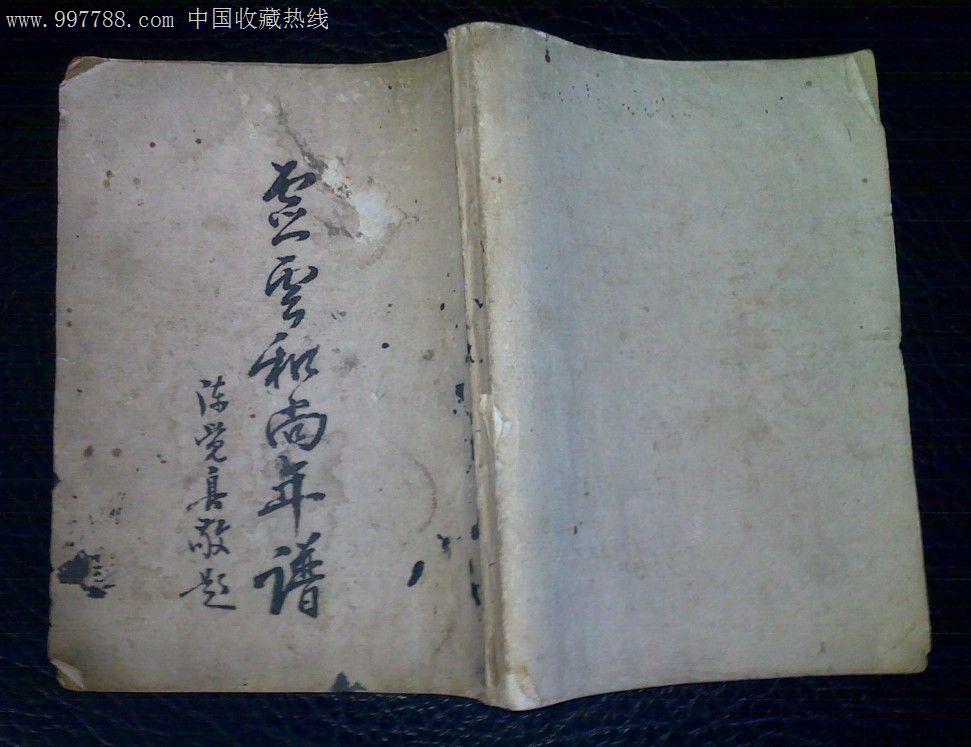 www.997788.com 中国收藏热线
虚雲和尚年譜
陈觉真敬题